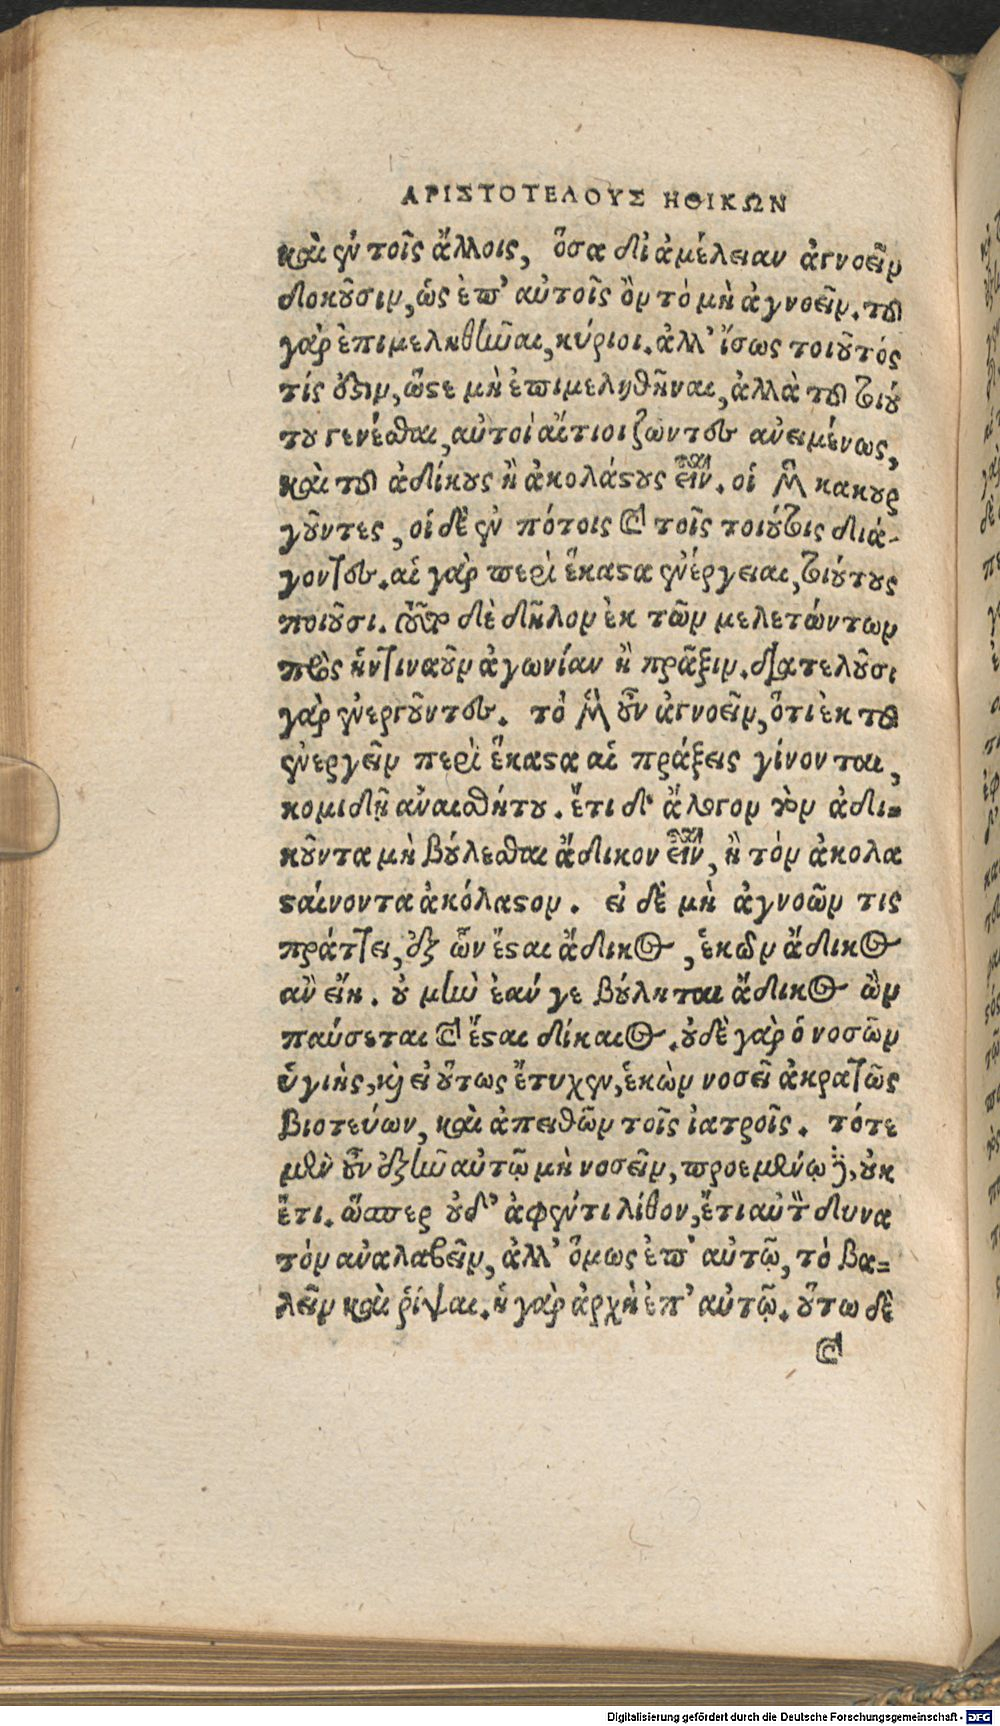 ΑΡΙΣΤΟΤΕΛΟΥΣ ΗΘΙΚΩΝ
καὶ ἐν τοῖς ἄλλοις, ὅσα δι᾽ ἀμέλειαν ἀγνοεῖν
δοκοῦσιν, ὡς ἐπ᾽ αὐτοῖς ὂν τὸ μὴ ἀγνοεῖν. τοῦ
γὰρ ἐπιμεληθῆναι, κύριοι. ἀλλ᾽ ἴσως τοιοῦτός
τίς ἐστιν, ὥστε μὴ ἐπιμεληθῆναι, ἀλλὰ τοῦ τοιού
του γενέσθαι, αὐτοὶ αἴτιοι ζῶντες ἀνειμένως,
καὶ τοῦ ἀδίκους ἢ ἀκολάστους εἶναι. οἱ μὲν κακουρ
γοῦντες, οἱ δὲ ἐν πότοις καὶ τοῖς τοιούτοις διά-
γοντες. αἱ γὰρ περὶ ἕκαστα ἐνέργειαι, τοιούτους
ποιοῦσι. τοῦτο δὲ δῆλον ἐκ τῶν μελετώντων
πρὸς ἡντιναοῦν ἀγωνίαν ἢ πρᾶξιν. διατελοῦσι
γὰρ ἐνεργοῦντες. τὸ μὲν οὖν ἀγνοεῖν, ὅτι ἐκ τοῦ
ἐνεργεῖν περὶ ἕκαστα αἱ πράξεις γίνονται,
κομιδῇ ἀναισθήτου. ἔτι δ᾽ ἄλογον τὸν ἀδι=
κοῦντα μὴ βούλεσθαι ἄδικον εἶναι, ἢ τὸν ἀκολα
σταίνοντα ἀκόλαστον. εἰ δὲ μὴ ἀγνοῶν τις
πράττει, ἐξ ὧν ἔσται ἄδικος, ἑκὼν ἄδικος
ἂν εἴη. οὐ μὴν ἐάν γε βούληται ἄδικος ὢν
παύσεται καὶ ἔσται δίκαιος. οὐδὲ γὰρ ὁ νοσῶν
ὑγιής, καὶ εἰ οὕτως ἔτυχεν, ἑκὼν νοσεῖ ἀκρατῶς
βιοτεύων, καὶ ἀπειθῶν τοῖς ἰατροῖς. τότε
μὲν οὖν ἐξῆν αὐτῷ μὴ νοσεῖν, προεμένῳ δ᾽, οὐκ
ἔτι. ὥσπερ οὐδ᾽ ἀφέντι λίθον, ἔτι αὐτὸν δυνα
τὸν ἀναλαβεῖν, ἀλλ᾽ ὅμως ἐπ᾽ αὐτῷ, τὸ βα=
λεῖν καὶ ῥίψαι. ἡ γὰρ ἀρχὴ ἐπ᾽ αὐτῷ. οὕτω δὲ
καὶ
Digitalisierung gefördert durch die Deutsche Forschungsgemeinschaft - DFG